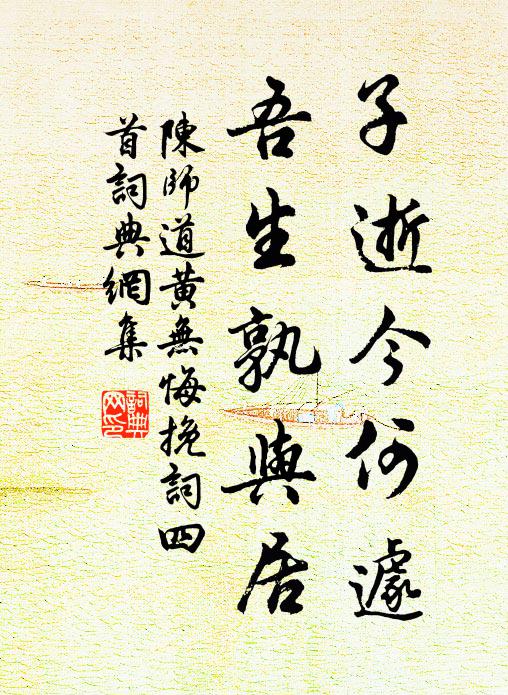 子逝今何遽
吾生孰與居
陳師道黃無悔挽詞四
首詞典網集
詞典
网印